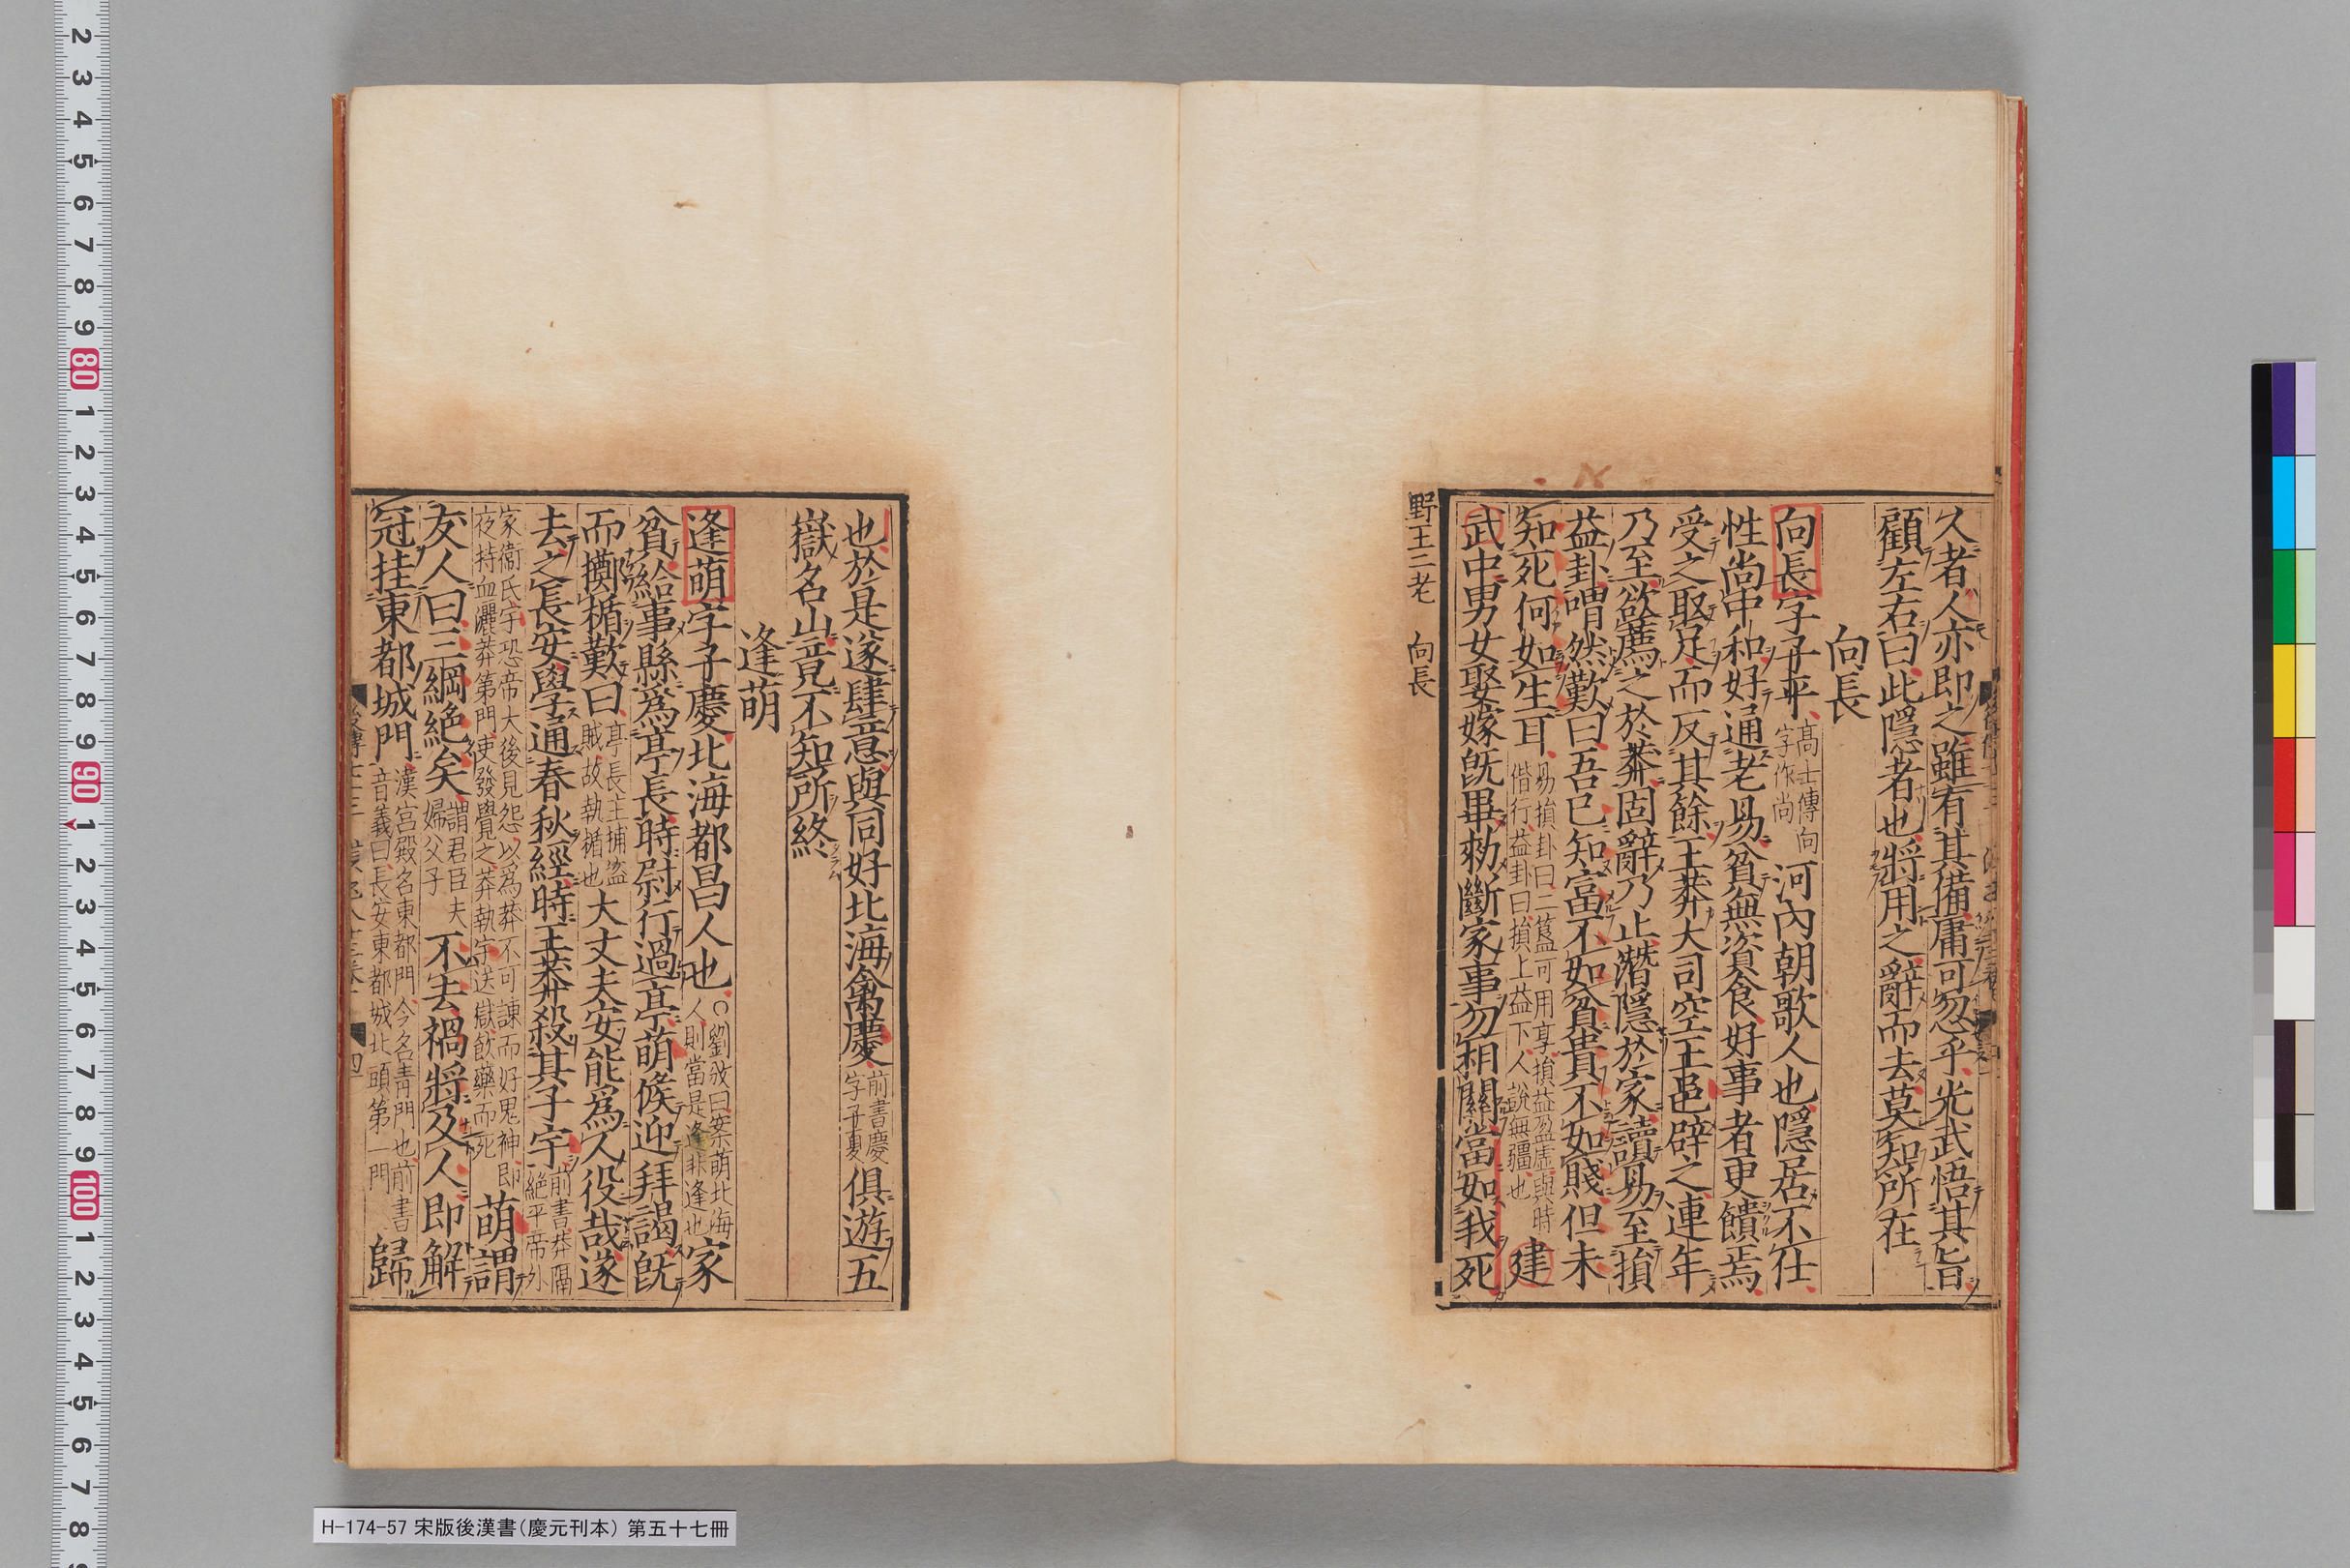 久者人亦即之雖有其備庸可忽乎光武悟其旨
顧左右曰此隱者也將用之辭而去莫知所在
向長
向長字子平高士傳向字作尚河內朝歌人也隱居不仕
性尚中和好通老易貧無資食好事者更饋焉
受之取足而反其餘王莽大司空王邑辟之連年
乃至欲薦之於莽固辭乃止潛隱於家讀易至損
益卦喟然歎曰吾已知富不如貧貴不如賤但未
知死何如生耳易損卦曰二簋可用享損益盈虛與時偕行益卦曰損上益下人說無疆也建
武中男女娶嫁旣畢勑斷家事勿相關當如我死
野王二老 向長
也於是遂肆意與同好北海禽慶前書慶字子夏俱遊五
嶽名山竟不知所終
逢萌
逢萌字子慶北海都昌人也○劉攽曰案萌北海人則當是逢非逢也家
貧給事縣爲亭長時尉行過亭萌候迎拜謁旣
而擲楯歎曰亭長主捕盜賊故執楯也大丈夫安能爲人役哉遂
去之長安學通春秋經時王莽殺其子宇前書莽隔絕平帝外
家衞氏宇恐帝大後見怨以為莽不可諫而好鬼神即夜持血灑莽第門使發覺之莽執宇送獄飮藥而死萌謂
友人曰三綱絶矣謂君臣夫婦父子不去禍將及人即解
冠挂東都城門漢宮殿名東都門今名青門也前書音義曰長安東都城北頭第一門歸
四
H-174-57 宋版後漢書(慶元刊本) 第五十七冊
2 3 4 5 6 7 8 9 80 1 2 3 4 5 6 7 8 9 90 1 2 3 4 5 6 7 8 9 100 1 2 3 4 5 6 7 8